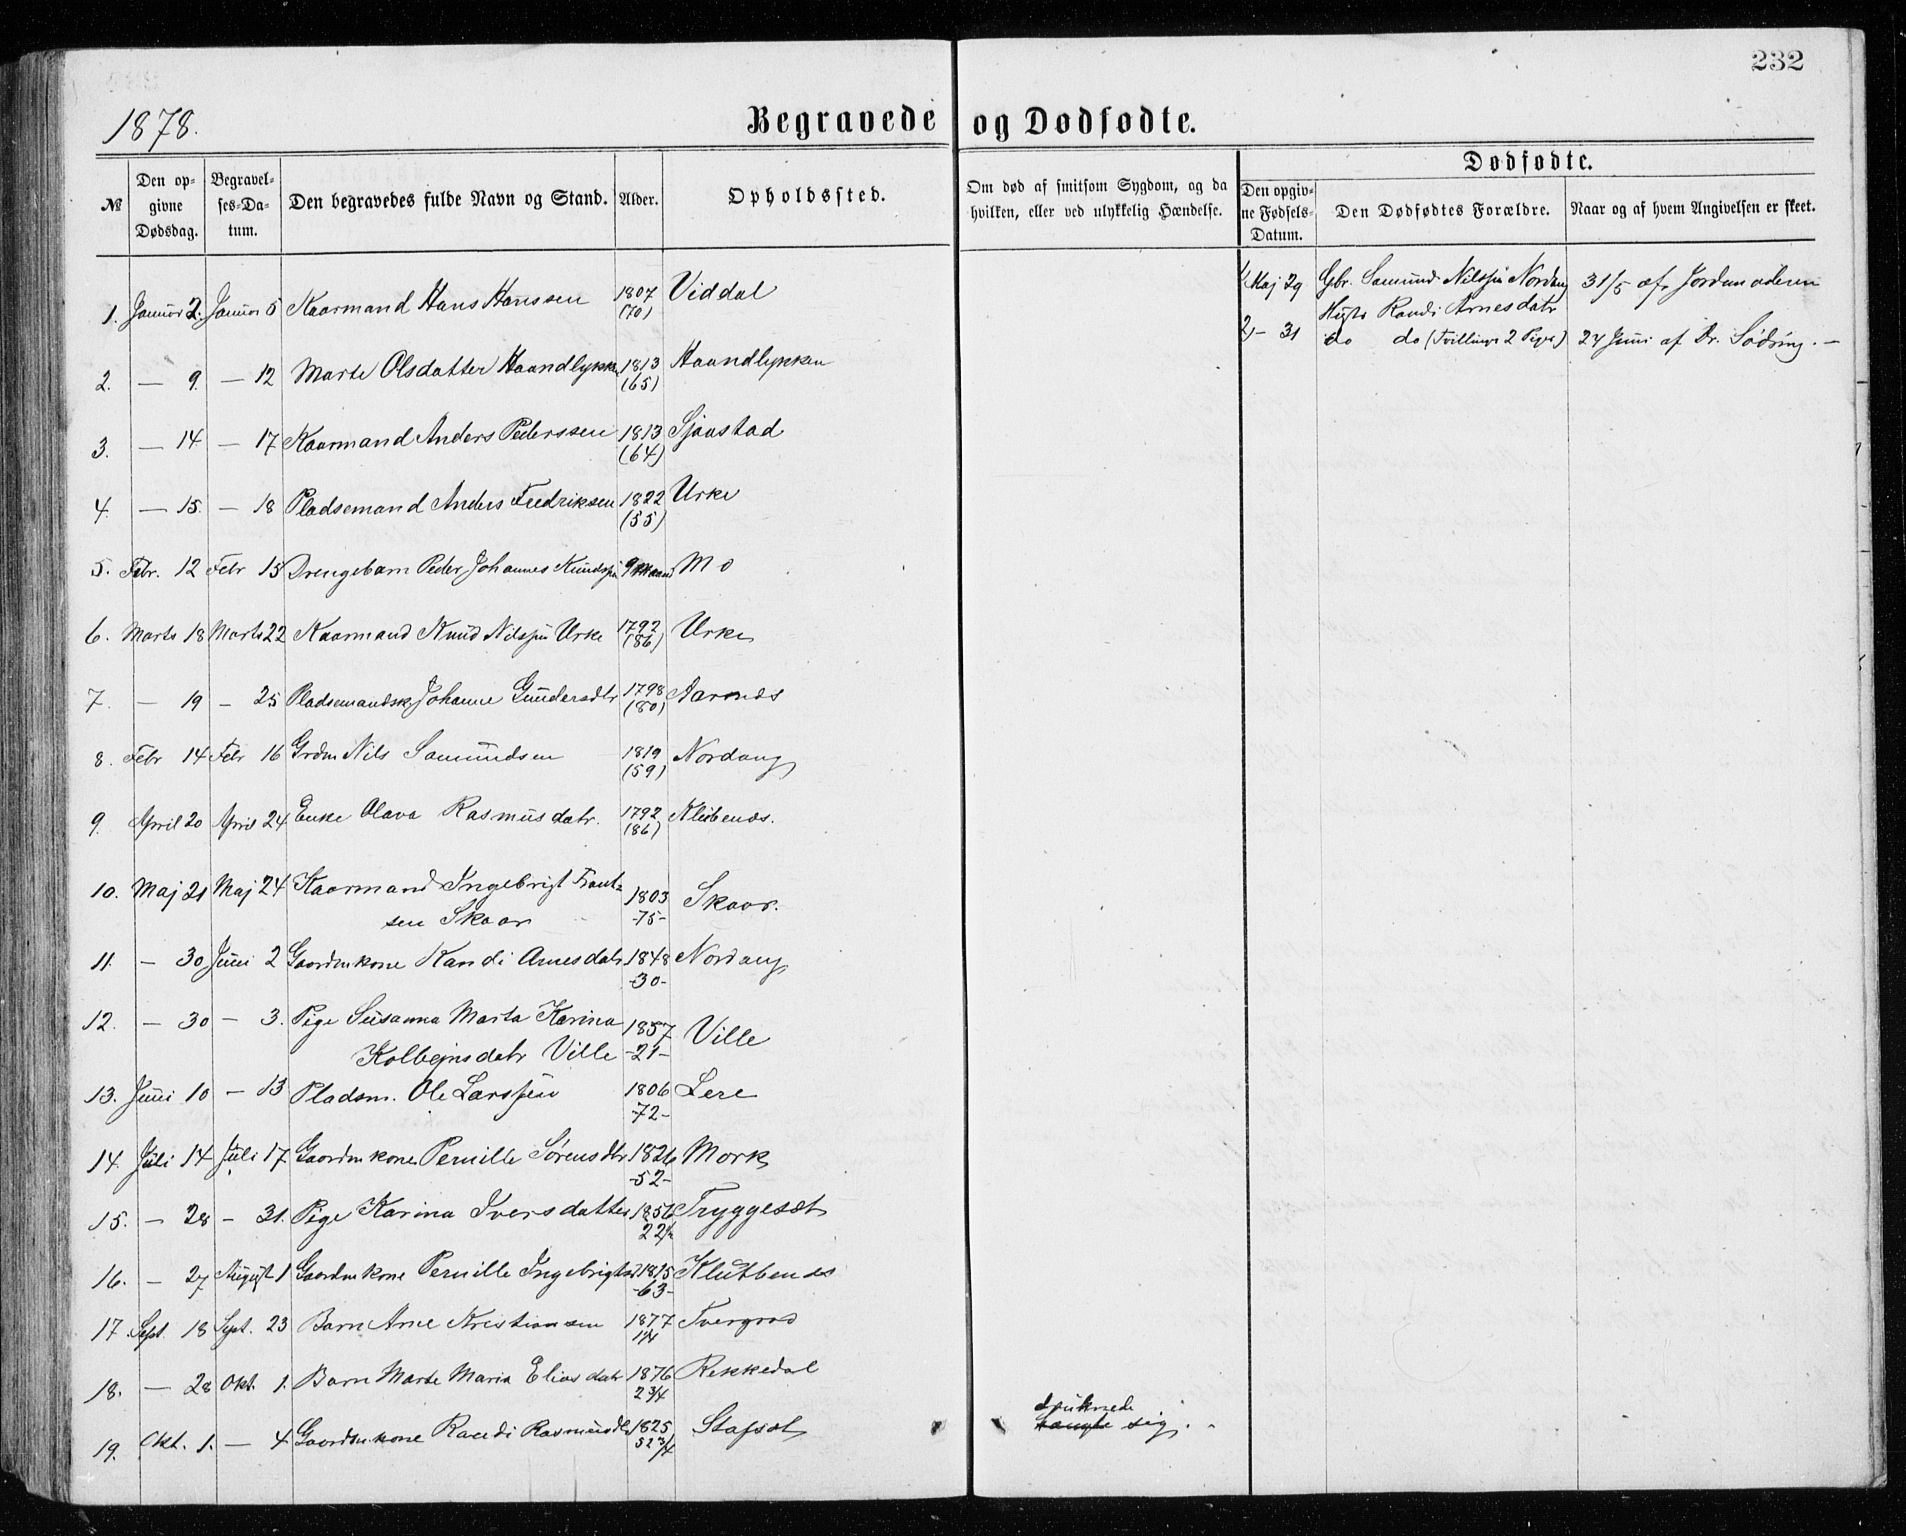 232
1878.
Begravede og Dødfødte.
Dødfødte.
№
Den opgivne Dødsdag.
Begravelses-Datum.
Den begravedes fulde Navn og Stand.
Alder.
Opholdssted.
Om død af smitsom Sygdom, og da hvilken, eller ved ulykkelig Hændelse.
Den opgivne Fødsels-Datum.
Den Dødfødtes Forældre.
Naar og af hvem Angivelsen er skeet.
1. Januar 2. Januar 5 Kaarmand Hans Hanssen 1807 (70) Viddal
2. — 9. — 12 Marte Olsdatter Haandlykke 1813 (65) Haandlykken
3. — 14. — 17 Kaarmand Anders Pederssen 1813 (64) Sjaastad
4. — 15. — 18 Pladsemand Anders Fredriksen 1822 (55) Urke
5. Febr. 12 Febr 15 Drengebarn Peder Johannes Knudssen 9 Maand Mo
6. Marts 18 Marts 22 Kaarmand Knud Nilssen Urke 1792 (86) Urke
7. — 19 — 25 Pladsemandsk. Johanne Gundersdtr 1798 (80) Aarnæs
8. Febr 14 Febr 16 Grdm Nils Samundsen 1819 (59) Nordang
9. April 20 April 24 Enke Olava Rasmusdatr. 1792 (86) Kleibenæs.
10. Maj 21 Maj 24 Kaarmand Ingebrigt Frant-
sen Skaar 1803 -75- Skaar.
11. — 30 Juni 2 Gaardmkone Randi Arnesdatr 1848 -30- Nordang
12. — 30 — 3. Pige Susanna Marta Karina
Kolbejnsdatr Ville 1857 -21- Ville
13. Juni 10 — 13 Pladsm. Ole Larssen 1806 -72- Lere
14. Juli 14 Juli 17 Gaardmkone Pernille Sørensdtr 1826 -52- Mork
15. — 28 — 31. Pige Karina Iversdatter 1856 22½ Tryggesæt
16. — 27 August 1 Gaardmkone Pernille Ingebrigtsd 1815 -63- Klubbenæs
17. Sept. 18 Sept. 23 Barn Arne Kristiansen 1877 1¼ Tvergrov
18. — 28 Okt. 1. Barn Marte Maria Eliasdatr 1876 2¾ Rekkedal
19. Okt. 1. — 4 Gaardmkone Randi Rasmusdtr 1825 52¾ Stafsæt
druknede
sig.
1, Maj 29 Gbr. Samund Nilssen Nordang 31/5 af Jordmoderen
Hustr Randi Arnesdatr
2, — 31 do do (Tvillinger 2 Piger) 24 Juni af Dr. Sødring. —